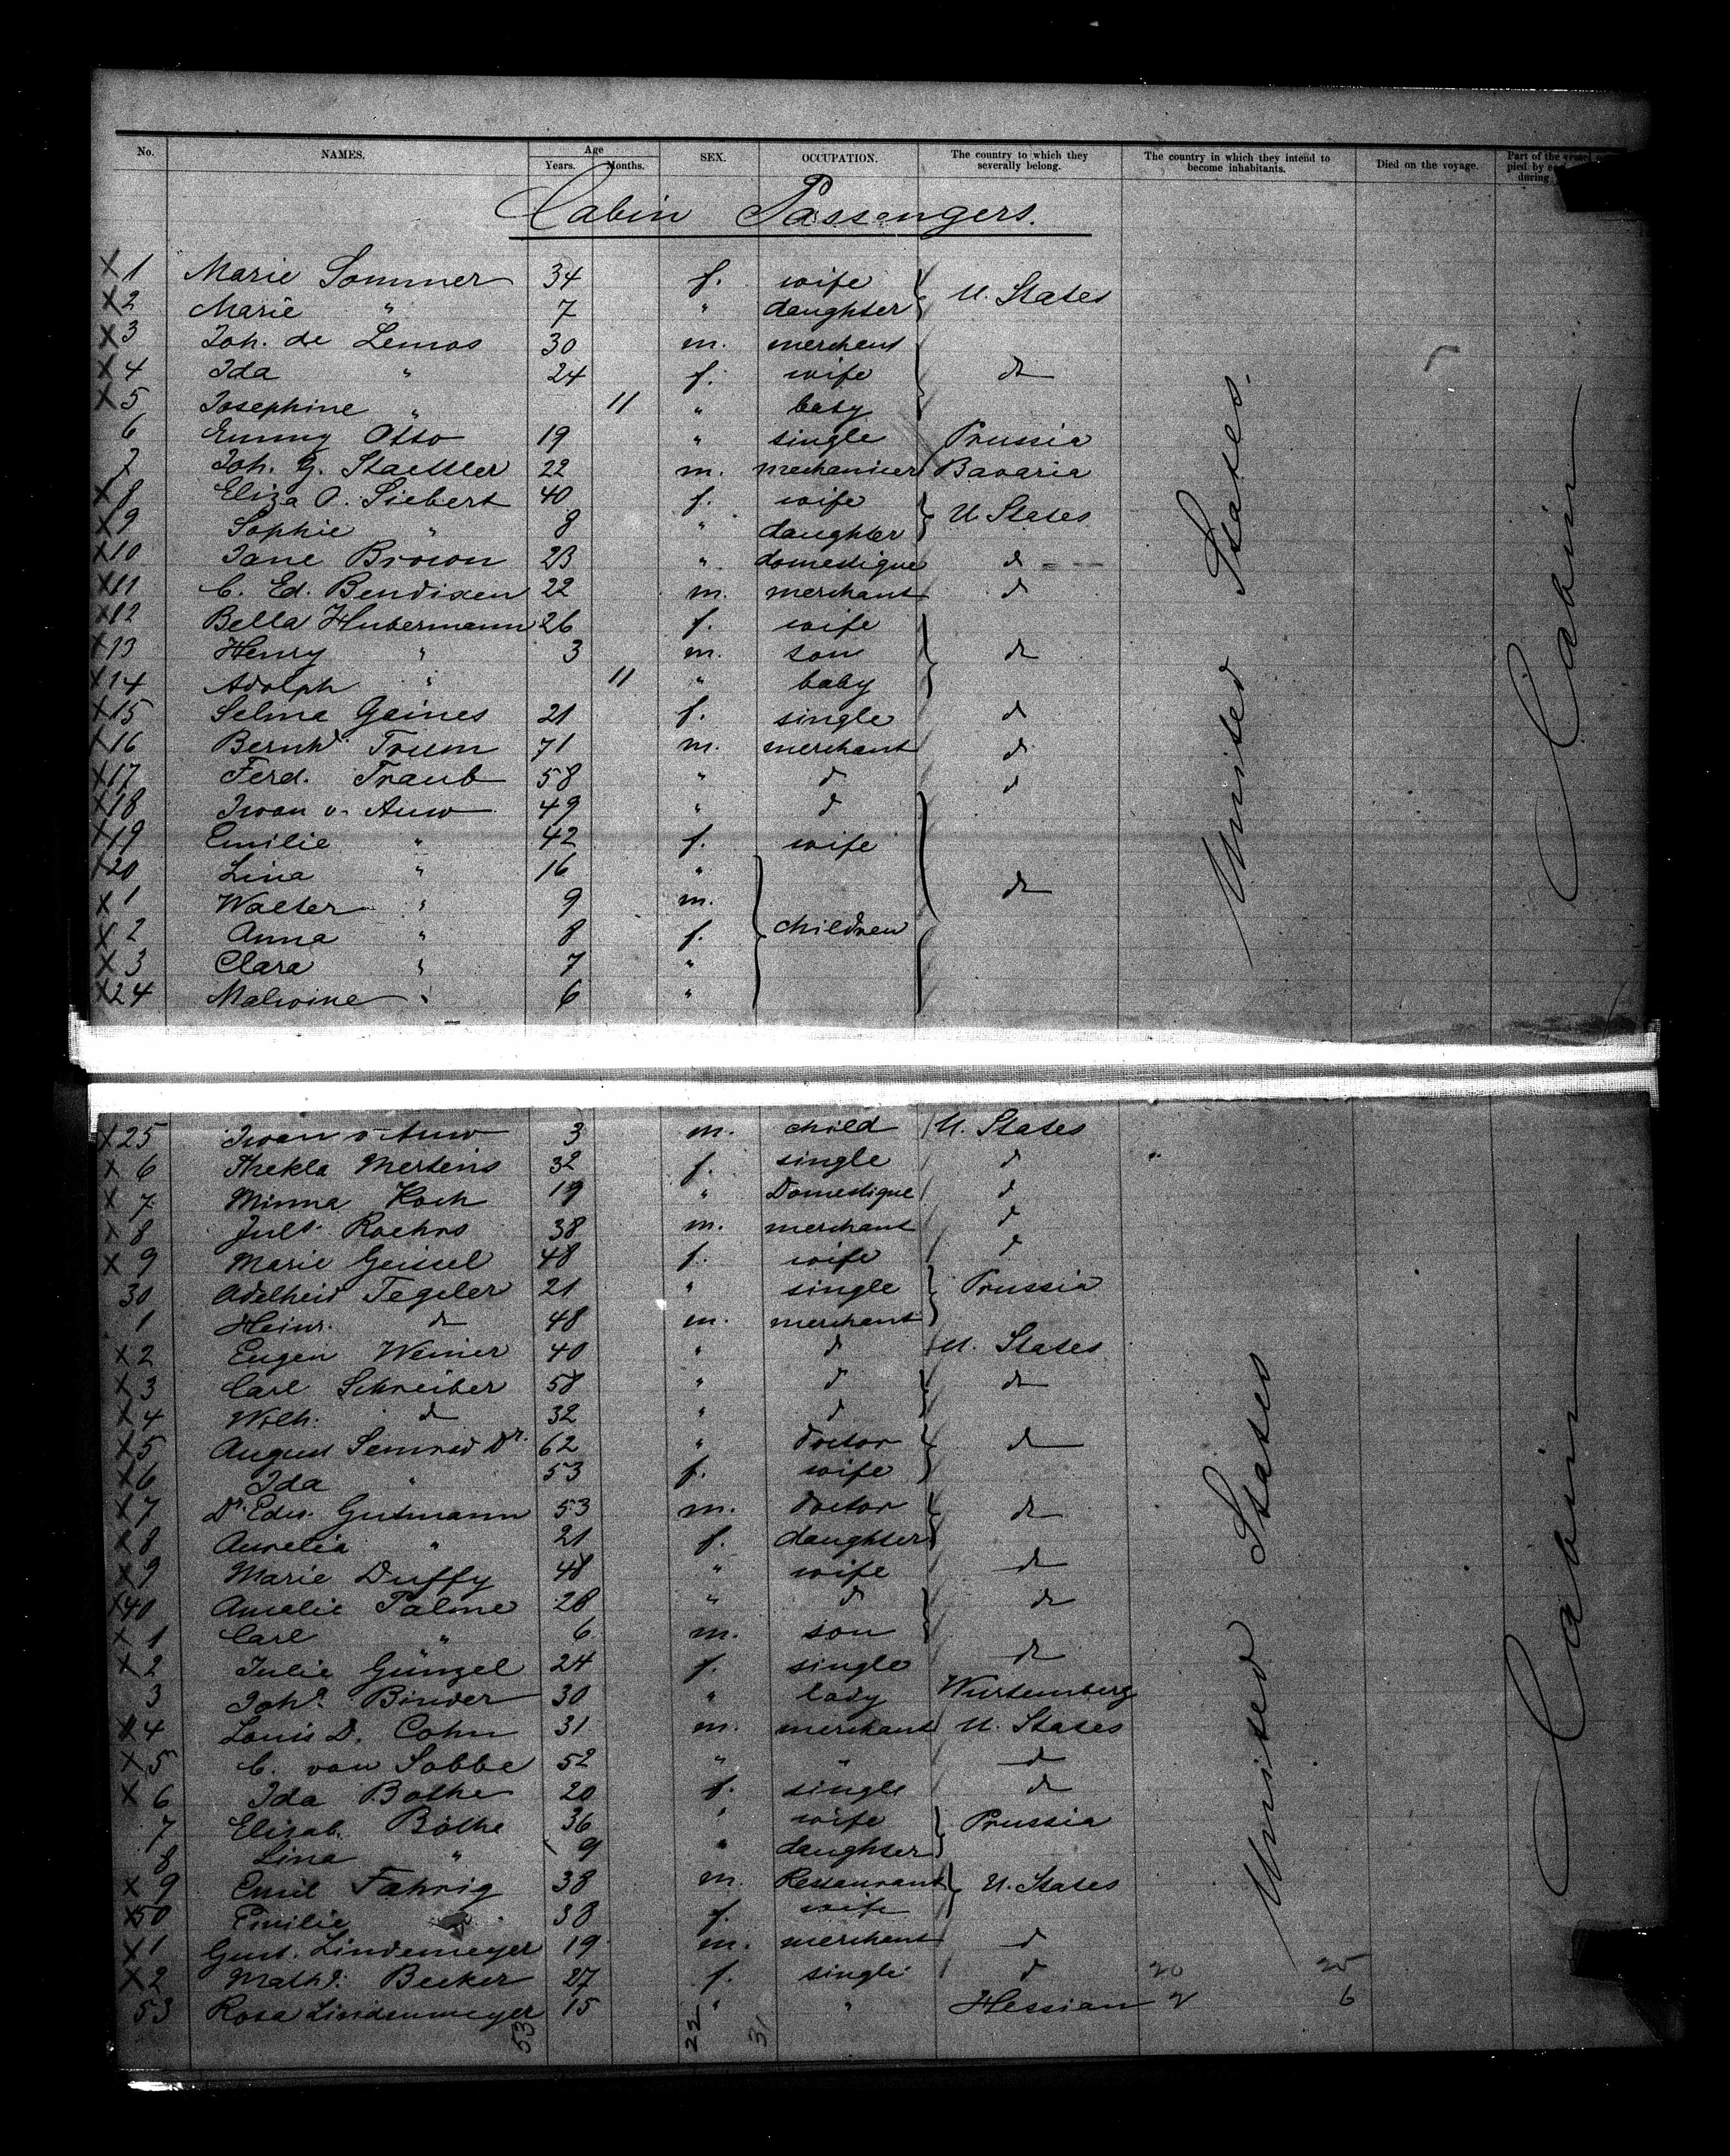 No. NAMES. Age Years. Months. SEX. OCCUPATION. The country to which they severally belong. The country in which they intend to become inhabitants. Died on the voyage. Part of the vessel
Cabin Passengers.
X 1 Marie Sommer 34 f. wife U. States
X 2 Marie " 7 " daughter
X 3 Joh. de Lemos 30 m. merchant
X 4 Ida " 24 f. wife do
X 5 Josephine " 11 " baby
6 Emmy Otto 19 " single Prussia
7 Joh. G. Staettler 22 m. mechanicer Bavaria
X 8 Eliza O. Siebert 40 f. wife U. States
X 9 Sophie " 8 " daughter
X 10 Jane Brown 23 " domestique do
X 11 C. Ed. Bendixen 22 m. merchant do
X 12 Bella Hubermann 26 f. wife
X 13 Henry " 3 m. son do
X 14 Adolph " 11 " baby
X 15 Selma Gaines 21 f. single do
X 16 Bernhd. Trum 71 m. merchant do
X 17 Ferd. Traub 58 " do do
X 18 Iwan v. Auw 49 " do
X 19 Emilie " 42 f. wife
X 20 Lina " 16 " do
X 1 Walter " 9 m.
X 2 Anna " 8 f. children
X 3 Clara " 7 "
X 24 Malwine " 6 "
United States.
Cabin
X 25 Iwan v Auw 3 m. child U. States
X 6 Thekla Mertens 32 f. single do "
X 7 Minna Koch 19 " Domestique do
X 8 Juls. Roehrs 38 m. merchant do
X 9 Marie Geissel 48 f. wife do
30 Adelheid Tegeler 21 " single Prussia
1 Heinr. do 48 m. merchant
X 2 Eugen Weiner 40 " do U. States
X 3 Carl Schreiber 58 " do do
X 4 Wilh. do 32 " do
X 5 August Semrad Dr. 62 " doctor do
X 6 Ida " 53 f. wife
X 7 Dr. Edw. Gutmann 53 m. doctor do
X 8 Aurelia " 21 f. daughter
X 9 Marie Duffy 48 " wife do
X 40 Amelie Palme 28 " do do
X 1 Carl " 6 m. son
X 2 Julie Günzel 24 f. single do
3 Joha. Binder 30 " lady Wurtemberg
X 4 Louis D. Cohn 31 m. merchant U. States
X 5 C. von Sobbe 52 " " do
X 6 Ida Bothe 20 f. single do
7 Elisab. Böthe 36 " wife Prussia
8 Lina " 9 " daughter
X 9 Emil Fahrig 38 m. Restaurant U. States
X 50 Emilie 38 f. wife
X 1 Gust. Lindemeyer 19 m. merchant do
X 2 Mathd. Becker 27 f. single do 20 25
53 Rosa Lindenmeyer 15 " " Hessian 2 6
53 22 31
United States
Cabin